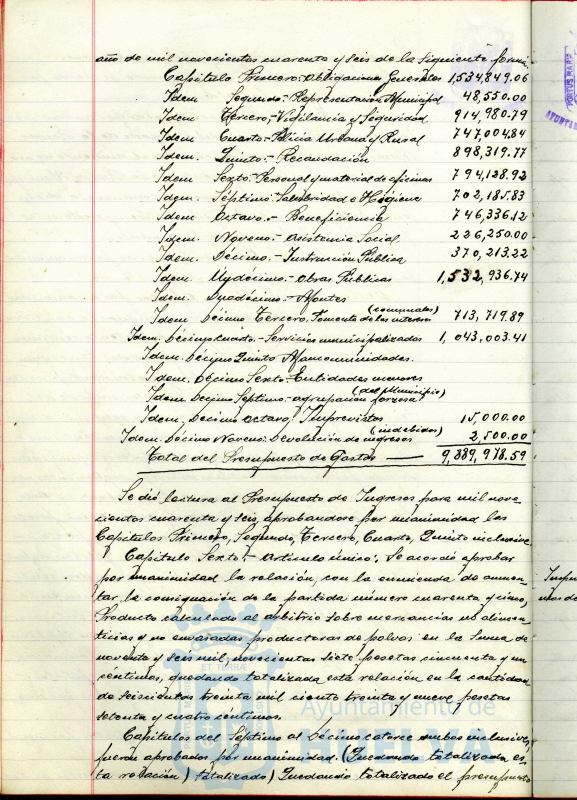 año de mil novecientos cuarenta y seis de la siguiente forma
Capítulo Primero.-Obligaciones Generales 1,534,849.06
Idem Segundo.-Representación Municipal 48,550.00
Idem Tercero,-Vigilancia y Seguridad 914,980.79
Idem Cuarto.-Policia Urbana y Rural 747,004,84
Idem. Quinto.-Recaudación 898,319.77
Idem Sexto.-Personal y material de oficinas 794,128,92
Idem. Séptimo.-Salubridad e Higiene 702,185.83
Idem Octavo.-Beneficiencia 746,336.12
Idem. Noveno.-Asistencia Social 226,250.00
Idem. Décimo.-Instrucción Pública 370,213.22
Idem. Undécimo.-Obras Públicas 1,532,936.74
Idem. Duodécimo.-Montes
Idem Décimo Tercero. Fomento de los intereses (comunales) 713,719.89
Idem. Décimo Cuarto.-Servicios municipalizados 1,043,003.41
Idem. Décimo Quinto Mancomunidades.
Idem. Décimo Sexto-Entidades menores
Idem Décimo Septimo-agrupación forzosa (del Municipio)
Idem, Décimo Octavo, Imprevistos 15,000.00
Idem. Décimo Noveno: Devolución de ingresos (indebidos) 2,500.00
Total del Presupuesto de Gastos — 9,889,978.59
Se dió lectura al Presupuesto de Ingresos para mil nove
cientos cuarenta y seis, aprobandose por unanimidad los
Capítulos Primero, Segundo, Tercero, Cuarto, Quinto inclusive.
Capítulo Sexto.-Articulo único: Se acordó aprobar
por unanimidad la relación, con la enmienda de aumen-
tar la consignación de la partida número cuarenta y cinco,
Producto calculado al arbitrio sobre mercancías no alimen
ticias y no envasadas, productoras de polvos en la suma de
noventa y seis mil, novecientas siete pesetas cincuenta y un
céntimos, quedando totalizada esta relación en la cantidad
de seiscientas treinta mil ciento treinta y nueve pesetas
setenta y cuatro céntimos.
Capítulos del Séptimo al Décimo catorce ambos inclusive,
fueron aprobados por unanimidad. (Quedando totalizada es
ta relación) totalizado) Quedando totalizado el presupuesto
Ayuntamiento de
HUELVA